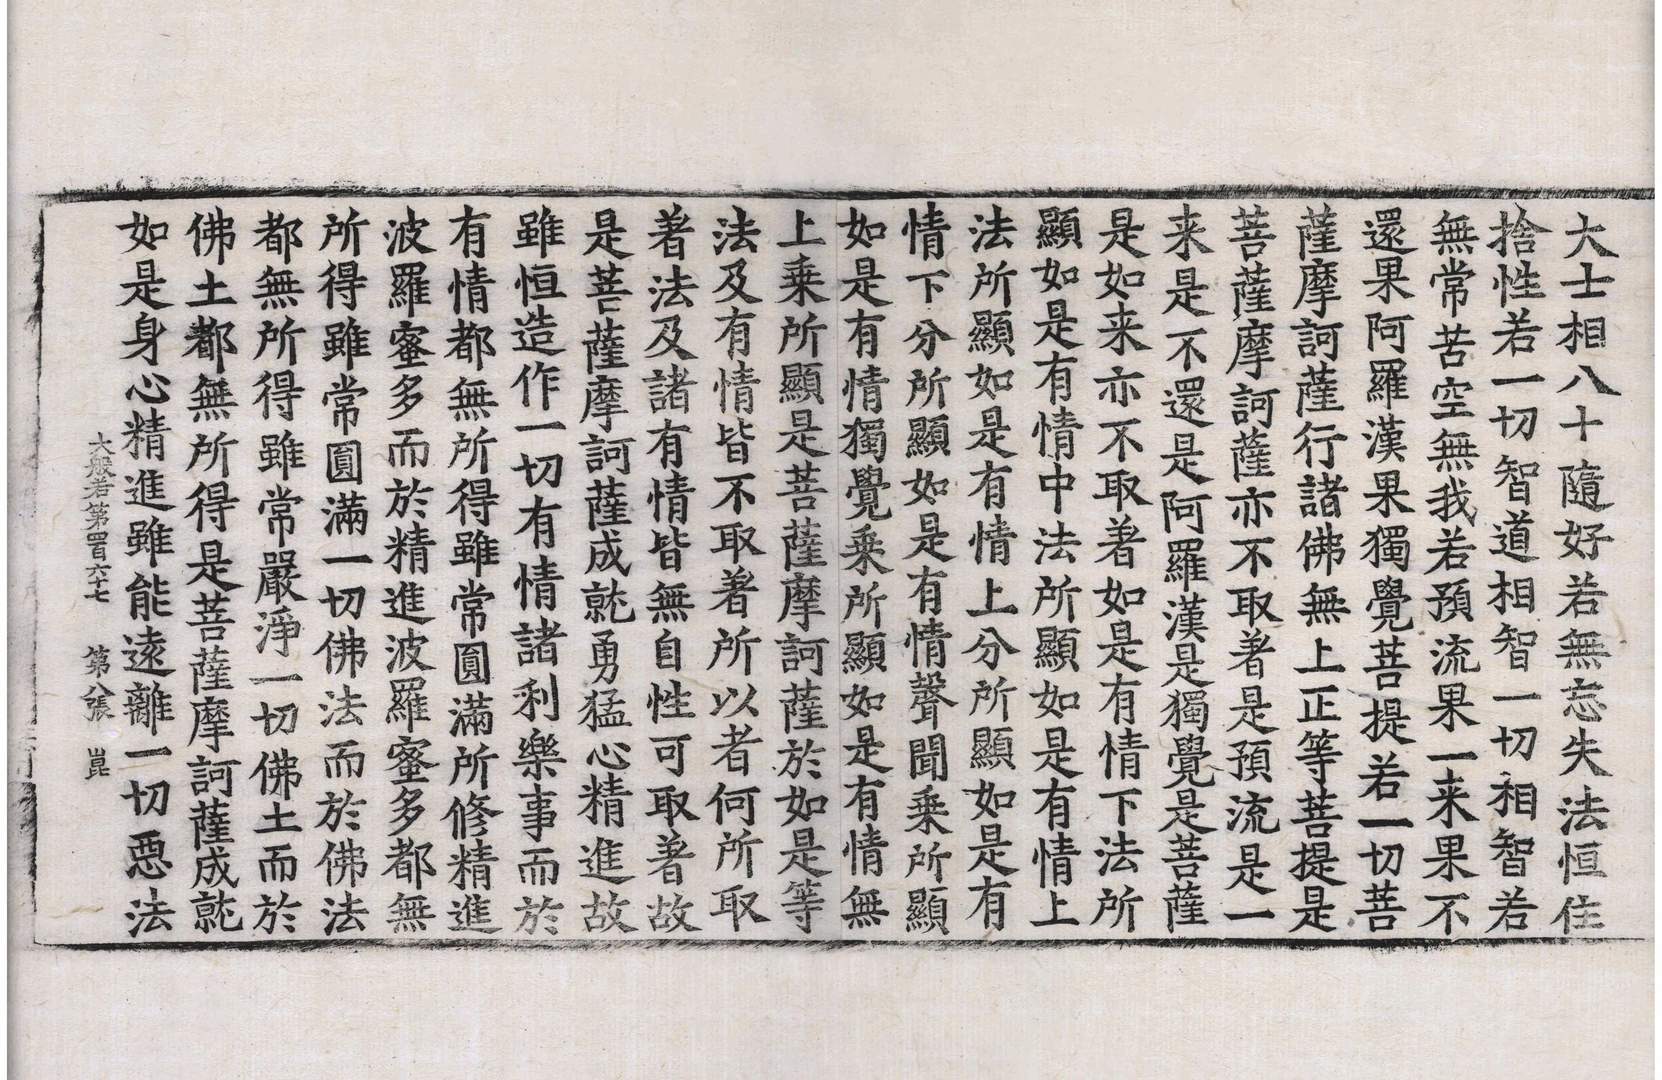 大士相八十隨好若無忘失法恒住
捨性若一切智道相智一切相智若
無常苦空無我若預流果一来果不
還果阿羅漢果獨覺菩提若一切菩
薩摩訶薩行諸佛無上正等菩提是
菩薩摩訶薩亦不取著是預流是一
来是不還是阿羅漢是獨覺是菩薩
是如来亦不取著如是有情下法所
顯如是有情中法所顯如是有情上
法所顯如是有情上分所顯如是有
情下分所顯如是有情聲聞乗所顯
如是有情獨覺乗所顯如是有情無
上乗所顯是菩薩摩訶薩於如是等
法及有情皆不取著所以者何所取
著法及諸有情皆無自性可取著故
是菩薩摩訶薩成就勇猛心精進故
雖恒造作一切有情諸利樂事而於
有情都無所得雖常圓滿所修精進
波羅蜜多而於精進波羅蜜多都無
所得雖常圓滿一切佛法而於佛法
都無所得雖常嚴淨一切佛土而於
佛土都無所得是菩薩摩訶薩成就
如是身心精進雖能遠離一切惡法
大般若第四百六十七 第八張 崑